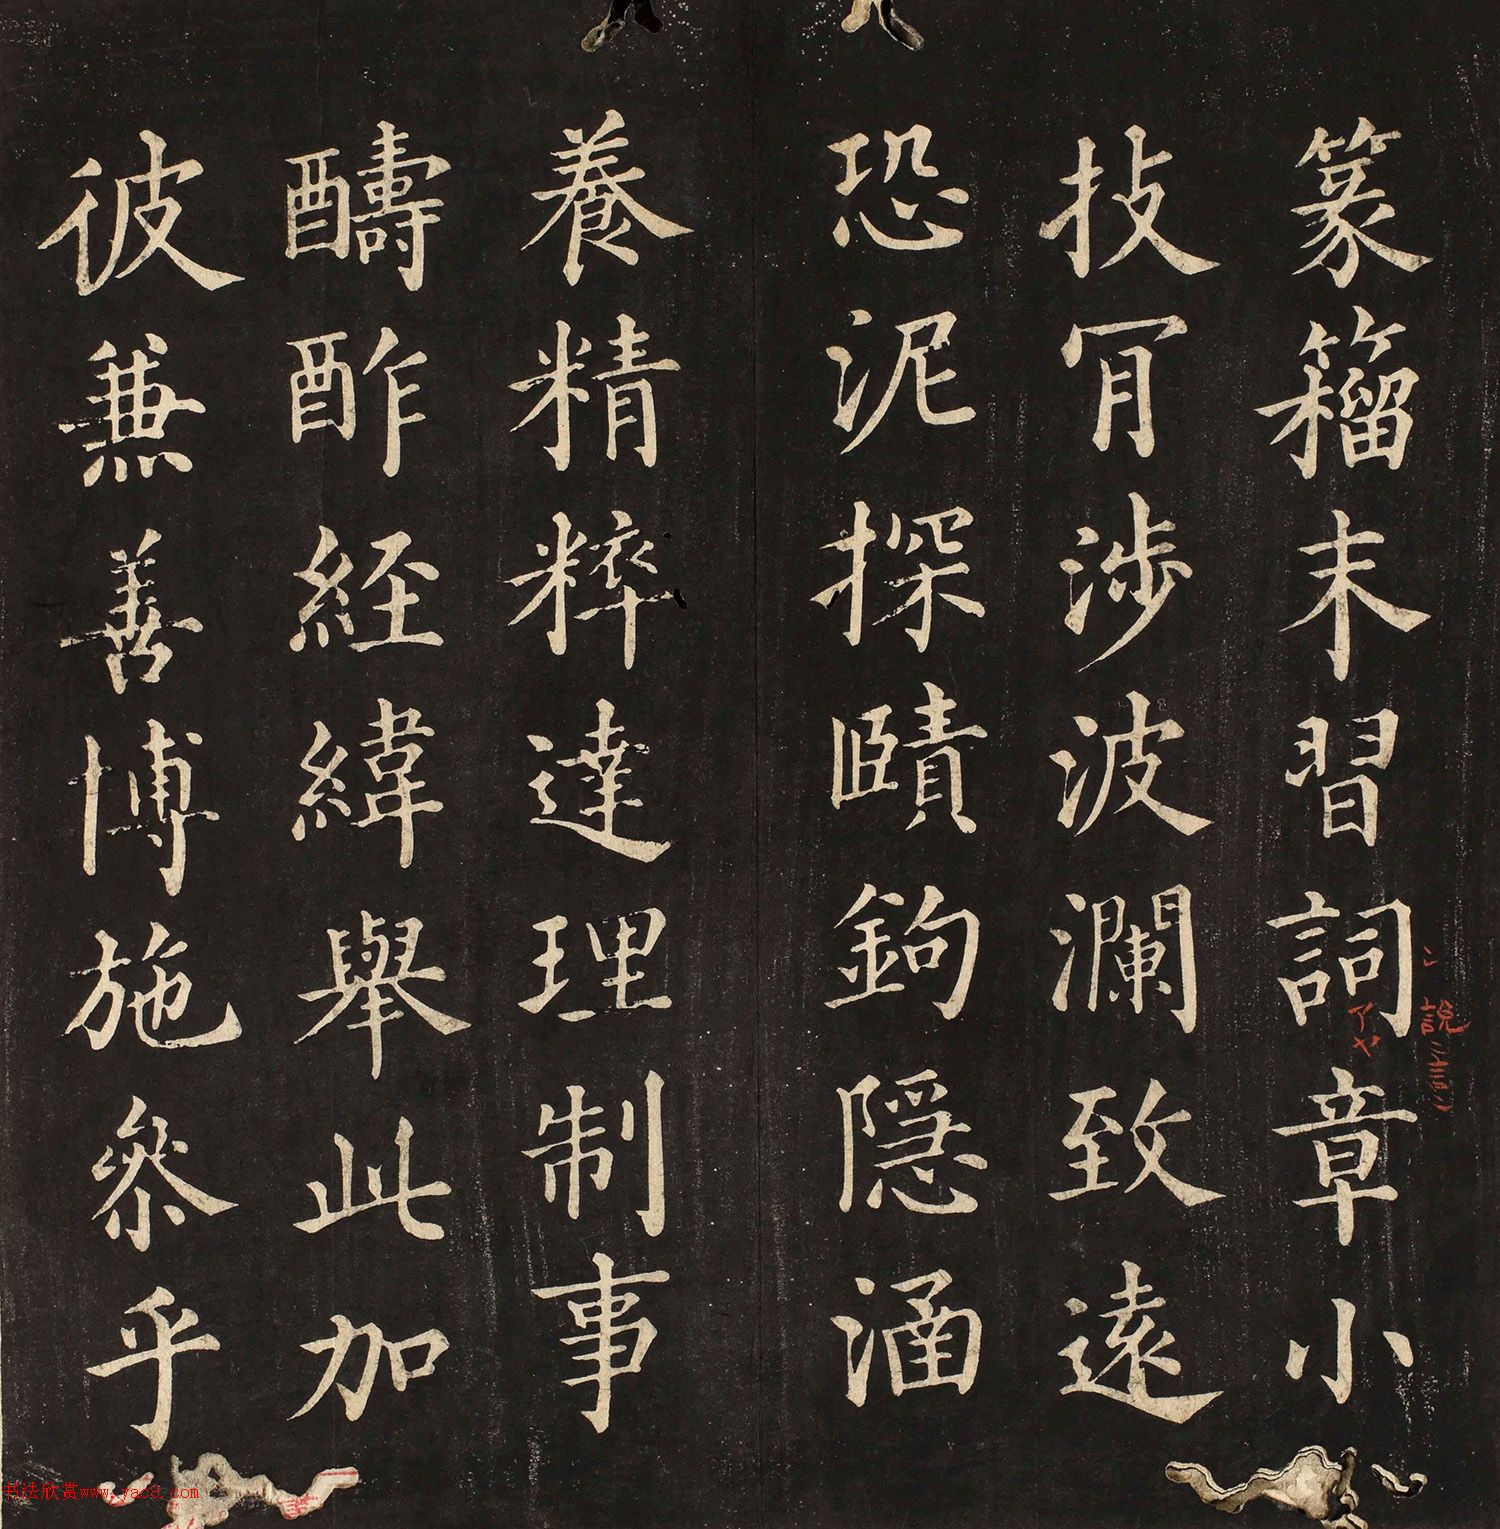 篆籀末習詞章小
技冐涉波瀾致遠
恐泥探賾鉤隱涵
養精粹達理制事
醻酢經緯舉此加
彼兼善博施叅乎
书法欣赏www.yac8.com